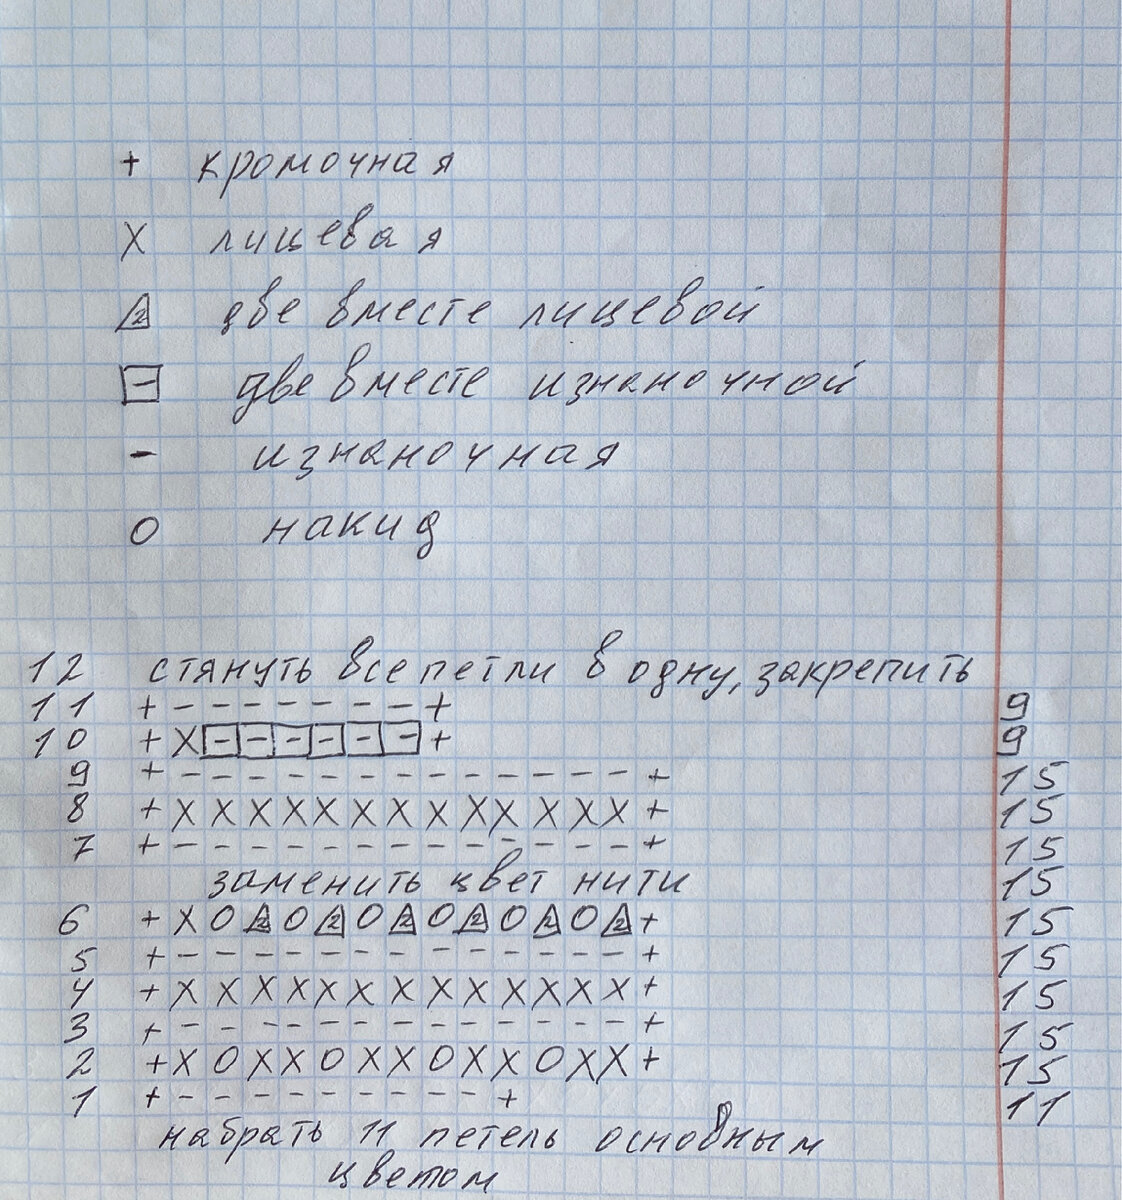 + кромочная
X лицевая
2 две вместе лицевой
- две вместе изнаночной
- изнаночная
O накид
12 стянуть все петли в одну, закрепить
11 + - - - - - - - + 9
10 + X - - - - - - + 9
9 + - - - - - - - - - - - - - + 15
8 + X X X X X X X X X X X X X + 15
7 + - - - - - - - - - - - - - + 15
заменить цвет нити 15
6 + X O 2 O 2 O 2 O 2 O 2 O 2 + 15
5 + - - - - - - - - - - - - - + 15
4 + X X X X X X X X X X X X X + 15
3 + - - - - - - - - - - - - - + 15
2 + X O X X O X X O X X O X X + 15
1 + - - - - - - - - - + 11
набрать 11 петель основным
цветом